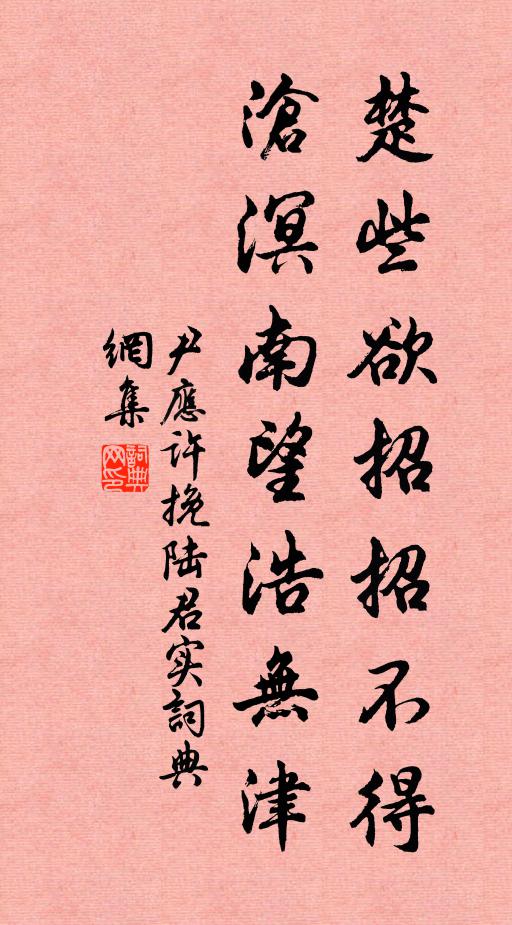 楚些欲招招不得
滄溟南望浩無津
尹應許挽陆君实詞典
網集
詞典網印